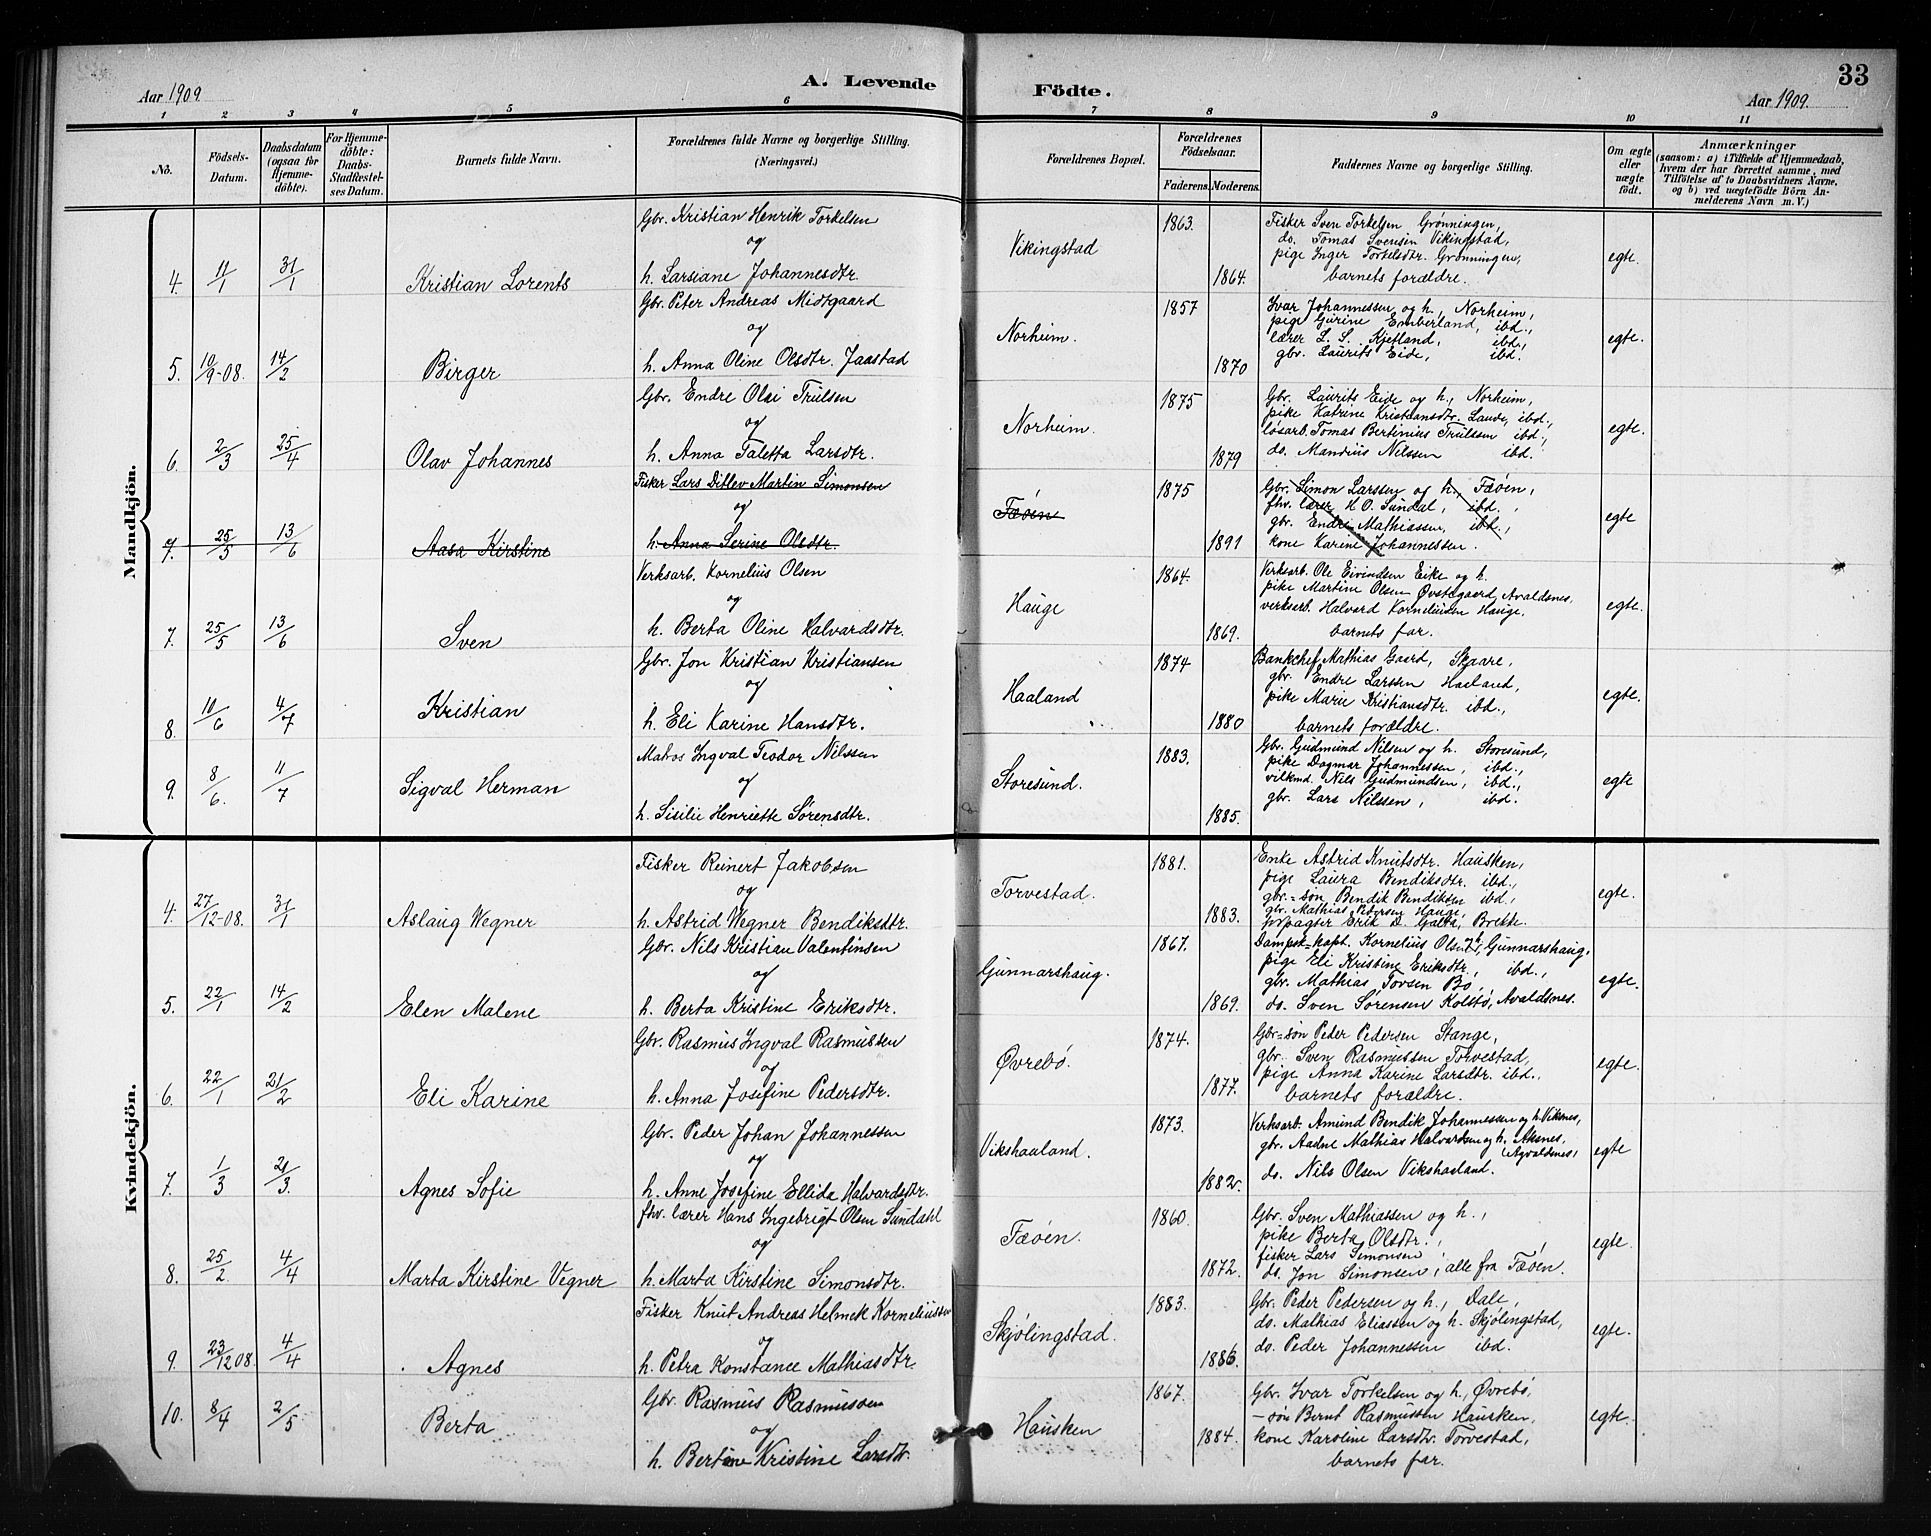 Aar 1909.
A. Levende Födte.
33
Aar 1909.
1 2 3 4 5 6 7 8 9 10 11
No.
Födsels-Datum.
Daabsdatum (ogsaa for Hjemme-döbte).
For Hjemme-döbte: Daabs-Stadfæstel-ses Datum.
Barnets fulde Navn.
Forældrenes fulde Navne og borgerlige Stilling. (Næringsvei.)
Forældrenes Bopæl.
Forældrenes Födselsaar.
Faderens. Moderens.
Faddernes Navne og borgerlige Stilling.
Om ægte eller uægte födt.
Anmærkninger
(saasom: a) i Tilfælde af Hjemmedaab, hvem der har forrettet samme, med Tilföielse af to Daabsvidners Navne, og b) ved uægtefödte Börn An-melderens Navn m. V.)
Mandkjön.
4. 11/1 31/1 Kristian Lorents
Gbr. Kristian Henrik Torkelsen
og
h. Larsiane Johannesdtr.
Vikingstad
1863.
1864.
Fisker Sven Torkelsen Grønningen,
do. Tomas Svensen Vikingstad,
pige Inger Torkelsdtr. Grønningen,
barnets forældre.
egte.
5. 10/9-08. 14/2 Birger
Gbr. Peter Andreas Midtgaard
og
h. Anna Oline Olsdtr. Jaastad
Norheim.
1857
1870
Ivar Johannessen og h., Norheim,
pige Gurine Emberland, ibd.,
lærer L. S. Kjetland, ibd.,
gbr. Laurits Eide, ibd.
egte.
6. 2/3 25/4 Olav Johannes
Gbr. Endre Olai Trulsen
og
h. Anna Taletta Larsdtr.
Norheim.
1875
1879
Gbr. Laurits Eide og h., Norheim,
pike Katrine Kristiansdtr. Lande, ibd.,
løsarb. Tomas Bertinius Trulssen ibd.,
do. Mandius Nilssen ibd.
egte.
7. 25/5 13/6 Aasa Kirstine
Fisker Lars Ditlev Martin Simonsen
og
h. Anna Serine Olsdtr.
Fæøen
1875
1891
Gbr. Simon Larssen og h., Fæøen,
fhv. lærer H. O. Sundal, ibd.,
gbr. Endre Mathiassen, ibd.,
kone Karine Johannessen.
egte
7. 25/5 13/6 Sven
Verksarb. Kornelius Olsen
og
h. Berta Oline Halvardsdtr.
Hauge
1864.
1869.
Verksarb. Ole Eivindsen Eike og h.
pike Martine Olsen Øvstegaard, Avaldsnes,
verksarb. Halvard Korneliussen Hauge.
barnets far.
egte.
8. 10/6 4/7 Kristian
Gbr. Jon Kristian Kristiansen
og
h. Eli Karine Hansdtr.
Haaland
1874
1880
Bankchef Mathias Gaard, Skaare,
gbr. Endre Larssen Haaland,
pike Marie Kristiansdtr. ibd.,
barnets forældre.
egte.
9. 8/6. 11/7 Sigval Herman
Matros Ingval Teodor Nilssen
og
h. Sisilie Henriette Sørensdtr.
Storesund.
1883.
1885.
Gbr. Gudmund Nilsen og h. Storesund,
pike Dagmar Johannessen, ibd.,
vilkmd. Nils Gudmundsen, ibd.,
gbr. Lars Nilssen, ibd.
egte
Kvindekjön.
4. 27/12-08. 31/1 Aslaug Wegner
Fisker Reinert Jakobsen
og
h. Astrid Wegner Bendiksdtr.
Torvestad.
1881.
1883.
Enke Astrid Knutsdtr. Hausken,
pige Laura Bendiksdtr. ibd.,
gbr.-søn Bendik Bendiksen ibd.,
gbr. Mathias Pedersen Hauge,
forpagter Erik D. Galta, Brekke.
egte.
5. 22/1 14/2 Elen Malene
Gbr. Nils Kristian Valentinsen
og
h. Berta Kristine Eriksdtr.
Gunnarshaug.
1867.
1869.
Dampsk-kapt. Kornelius Olsen, Gunnarshaug,
pige Eli Kristine Eriksdtr., ibd.,
gbr. Mathias Torsen Bø,
do. Sven Sørensen Kolstø, Avaldsnes.
egte.
6. 22/1 21/2 Eli Karine
Gbr. Rasmus Ingval Rasmussen
og
h. Anna Josefine Pedersdtr.
Øvrebø.
1874.
1877.
Gbr-søn Peder Pedersen Stange,
gbr. Sven Rasmussen Torvestad,
pige Anna Karine Larsdtr. ibd.,
barnets forældre.
egte.
7. 1/3 21/3. Agnes Sofie
Gbr. Peder Johan Johannessen
og
h. Anne Josefine Ellida Halvardsdtr.
Vikshaaland.
1873.
1882.
Verksarb. Amund Bendik Johannessen og h. Viksnes,
gbr. Aadne Mathias Halvardsen og h. Aksnes,
(Avaldsnes,
do. Nils Olsen Vikshaaland.
egte
8. 25/2. 4/4 Marta Kirstine Vegner
fhv. lærer Hans Ingebrigt Olsen Sundahl
og
h. Marta Kirstine Simonsdtr.
Fæøen.
1860.
1872.
Gbr. Sven Mathiassen og h.,
pike Berta Olsdtr.,
fisker Lars Simonsen
do. Jon Simonsen; alle fra Fæøen.
egte.
9. 23/12 08. 4/4 Agnes
Fisker Knut Andreas Helmek Korneliussen
og
h. Petra Konstance Mathiasdtr.
Skjølingstad.
1883.
1886.
Gbr. Peder Pedersen og h., Dale,
do. Mathias Eliassen og h. Skjølingstad,
do. Peder Johannessen ibd.
egte.
10. 8/4 2/5 Berta
Gbr. Rasmus Rasmussen
og
h. Bertine Kristine Larsdtr.
Hausken
1867.
1884.
Gbr. Ivar Torkelsen og h., Øvrebø,
-søn Bernt Rasmussen Hausken,
kone Karoline Larsdtr. Torvestad,
barnets far.
egte.